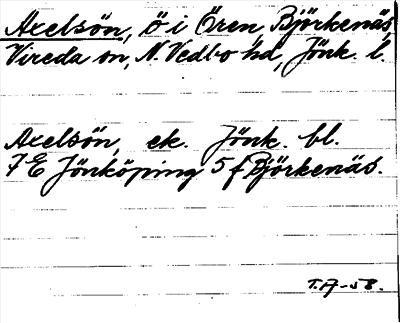 Axelsön, ö i Ören, Björkenäs,
Vireda sn, N. Vedbo hd, Jönk. l.
Axelsön, ek. Jönk. bl.
7 E Jönköping 5 f Björkenäs.
T.A-58.